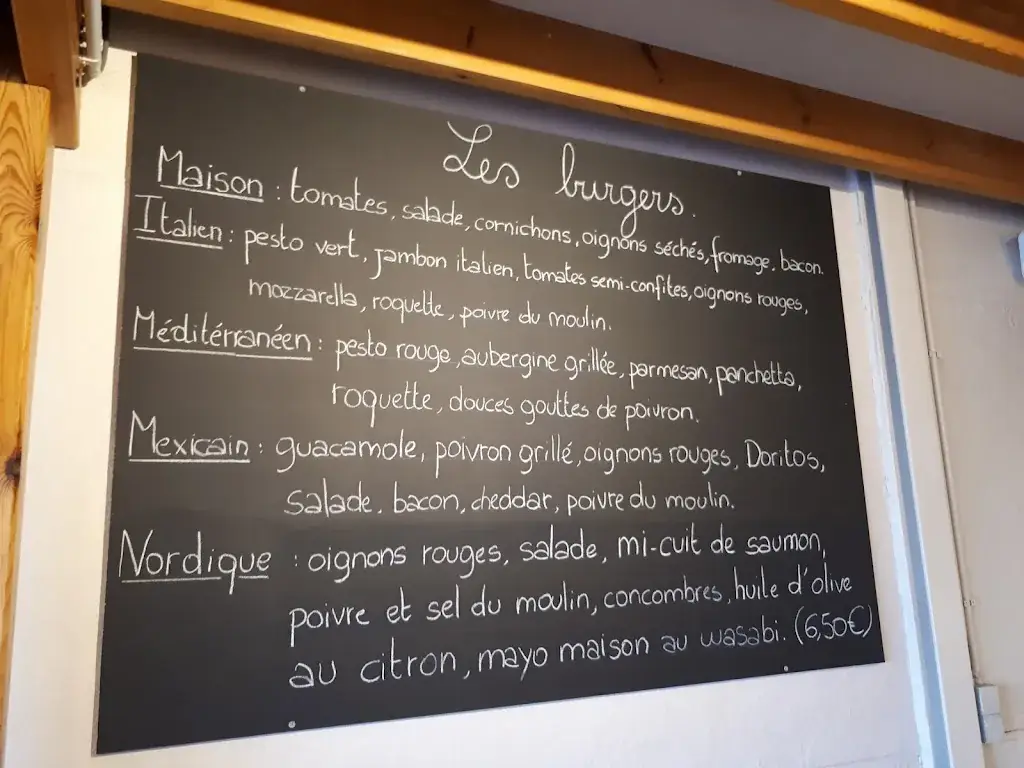 Les burgers.
Maison : tomates, salade, cornichons, oignons séchés, fromage, bacon.
Italien : pesto vert, jambon italien, tomates semi-confites, oignons rouges,
mozzarella, roquette, poivre du moulin.
Méditérranéen : pesto rouge, aubergine grillée, parmesan, panchetta,
roquette, douces gouttes de poivron.
Mexicain : guacamole, poivron grillé, oignons rouges, Doritos,
salade, bacon, cheddar, poivre du moulin.
Nordique : oignons rouges, salade, mi-cuit de saumon,
poivre et sel du moulin, concombres, huile d'olive
au citron, mayo maison au wasabi. (6,50€)